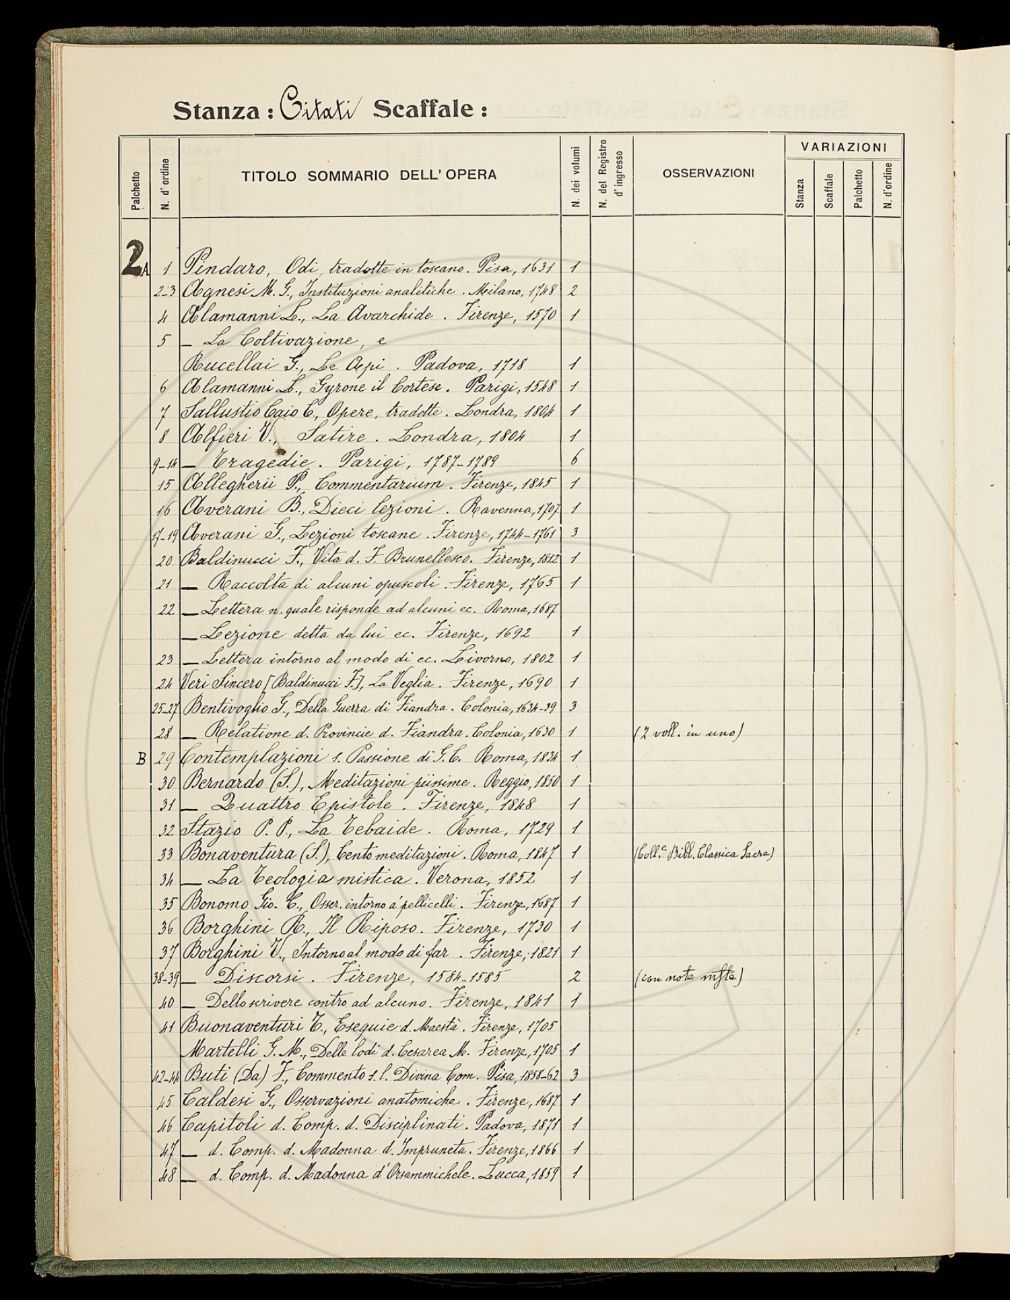 Stanza: Citati Scaffale:
Palchetto N. d'ordine TITOLO SOMMARIO DELL'OPERA N. dei volumi N. del Registro d'ingresso OSSERVAZIONI VARIAZIONI
Stanza Scaffale Palchetto N. d'ordine
2A 1 Pindaro, Odi, tradotte in toscano. Pisa, 1631 1
2-3 Agnesi M. G., Instituzioni analitiche. Milano, 1748 2
4 Alamanni L., La Avarchide. Firenze, 1570 1
5 — La Coltivazione, e
Rucellai G., Le Api. Padova, 1718 1
6 Alamanni L., Gyrone il Cortese. Parigi, 1548 1
7 Sallustio Caio C., Opere, tradotte. Londra, 1804 1
8 Alfieri V., Satire. Londra, 1804 1
9-14 — Tragedie. Parigi, 1787-1789 6
15 Allegherii P., Commentarium. Firenze, 1845 1
16 Averani B., Dieci lezioni. Ravenna, 1707 1
17-19 Averani G., Lezioni toscane. Firenze, 1744-1761 3
20 Baldinucci F., Vita d. F. Brunellesco. Firenze, 1812 1
21 — Raccolta di alcuni opuscoli. Firenze, 1765 1
22 — Lettera n. quale risponde ad alcuni ec. Roma, 1687
— Lezione detta da lui ec. Firenze, 1692 1
23 — Lettera intorno al modo di ec. Livorno, 1802 1
24 Veri Sincero [Baldinucci F.], La Veglia. Firenze, 1690 1
25-27 Bentivoglio G., Della Guerra di Fiandra. Colonia, 1634-39 3
28 — Relatione d. Provincie d. Fiandra. Colonia, 1630 1 (2 voll. in uno)
B 29 Contemplazioni s. Passione di G. C. Roma, 1834 1
30 Bernardo (S.), Meditazioni piissime. Reggio, 1850 1
31 — Quattro Epistole. Firenze, 1848 1
32 Stazio P. P., La Tebaide. Roma, 1729 1
33 Bonaventura (S.), Cento meditazioni. Roma, 1847 1 (Coll.e Bibl. Classica Sacra)
34 — La Teologia mistica. Verona, 1852 1
35 Bonomo Gio. C., Osser. intorno a' pellicelli. Firenze, 1687 1
36 Borghini R., Il Riposo. Firenze, 1730 1
37 Borghini V., Intorno al modo di far. Firenze, 1821 1
38-39 — Discorsi. Firenze, 1584-1585 2 (con note mss.te)
40 — Dello scrivere contro ad alcuno. Firenze, 1841 1
41 Buonaventuri T., Esequie d. Maestà. Firenze, 1705
Martelli G. M., Delle lodi d. Cesarea M. Firenze, 1705 1
42-44 Buti (Da) F., Commento s. l. Divina Com. Pisa, 1858-62 3
45 Caldesi G., Osservazioni anatomiche. Firenze, 1687 1
46 Capitoli d. Comp. d. Disciplinati. Padova, 1871 1
47 — d. Comp. d. Madonna d. Impruneta. Firenze, 1866 1
48 — d. Comp. d. Madonna d'Orsammichele. Lucca, 1859 1